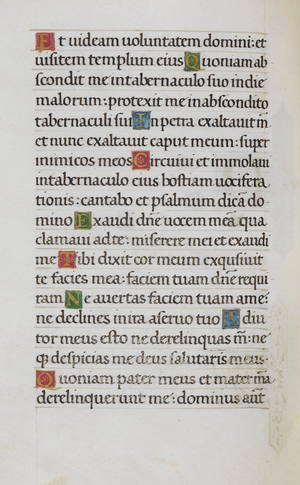 Et uideam uoluntatem domini: et
uisitem templum eius Quoniam ab
scondit me in tabernaculo suo in die
malorum: protexit me in abscondito
tabernaculi sui In petra exaltauit m
et nunc exaltauit caput meum: super
inimicos meos Circuiui et immolaui
in tabernaculo eius hostiam uocifera
tionis: cantabo et psalmum dicā do
mino Exaudi dn̄e uocem meā qua
clamaui ad te: miserere mei et exaudi
me Tibi dixit cor meum exquisiuit
te facies mea: faciem tuam dn̄e requi
ram Ne auertas faciem tuam a me:
ne declines in ira a seruo tuo Adiu
tor meus esto ne derelinquas m̄: ne
q̨ despicias me deus salutaris meus
Quoniam pater meus et mater m̄a
derelinquerunt me: dominus aūt